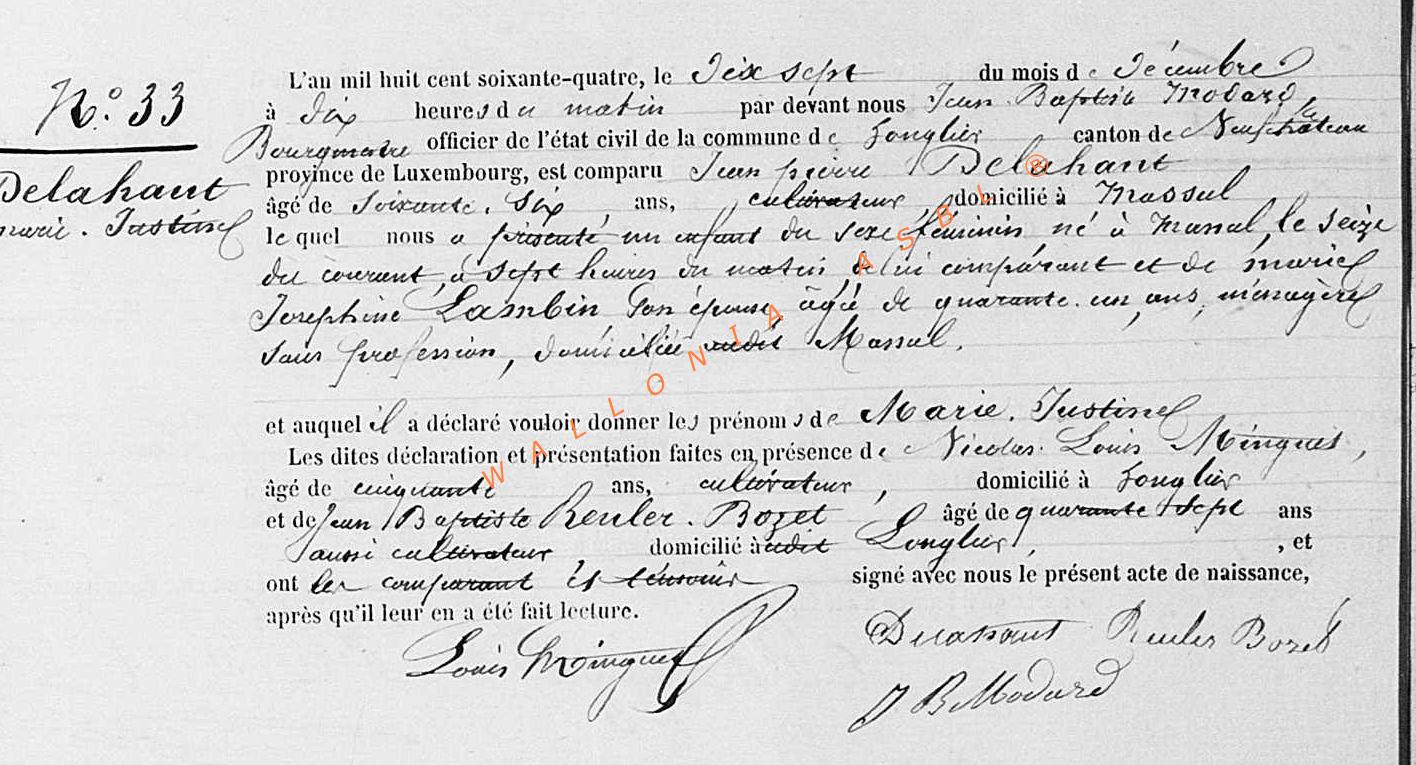 N.° 33
Delahaut
marie. Justine
L'an mil huit cent soixante-quatre, le Dix sept du mois de Décembre
à Dix heures du matin par devant nous Jean Baptiste Modard,
Bourgmestre officier de l'état civil de la commune de Longlier canton de Neufchateau
province de Luxembourg, est comparu Jean pierre Delahaut
âgé de soixante. Six ans, cultivateur, domicilié à Massul
lequel nous a présenté un enfant du sexe féminin, né à Massul, le seize
du courant, à sept heures du matin, de lui comparant et de marie
Josephine Lambin son épouse, âgée de quarante. un, ans, ménagère
sans profession, domiciliée audit Massul.
et auquel il a déclaré vouloir donner les prénoms de Marie. Justine
Les dites déclaration et présentation faites en présence de Nicolas. Louis Minguet,
âgé de cinquante ans, cultivateur, domicilié à Longlier
et de Jean Baptiste Reuler. Bozet âgé de quarante sept ans
aussi cultivateur, domicilié à udit Longlier, , et
ont les comparant et témoins signé avec nous le présent acte de naissance,
après qu'il leur en a été fait lecture.
Louis Minguet Delahaut Reuler Bozet
J B Modard
WALLONIA ASBL ®